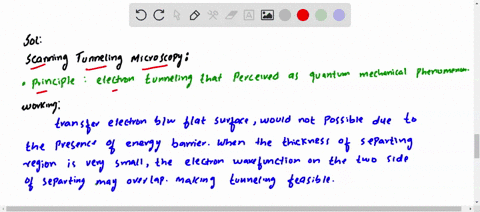 Sol:
Scanning Tunneling Microscopy:
• Principle : electron tunneling that Perceived as quantum mechanical phenomenon.
working:
transfer electron b/w flat surface, would not possible due to
the presence of energy barrier. when the thickness of separting
region is very small, the electron wavefunction on the two side
of separting may overlap. making tunneling feasible.